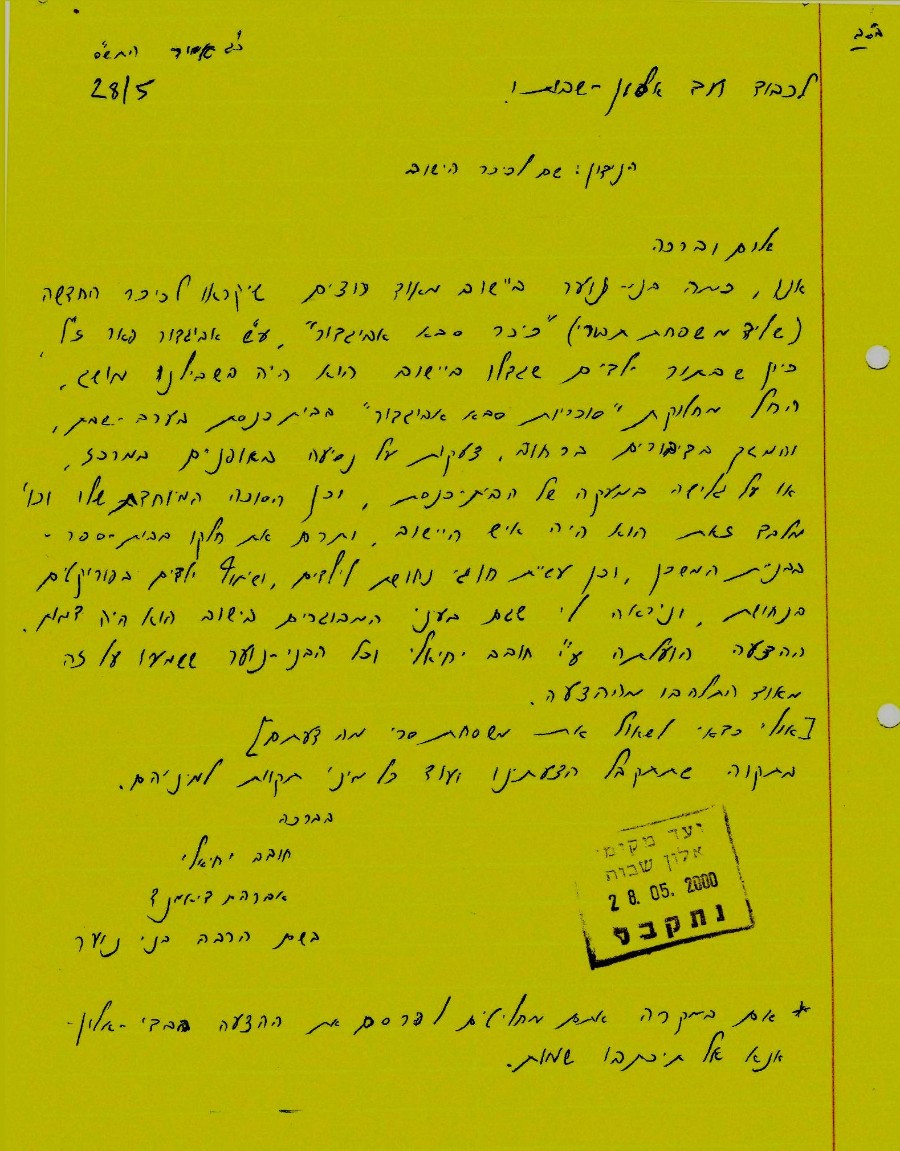 בס"ד
כ"ג אייר התש"ס
28/5
לכבוד ועד אלון-שבות!
הנידון: שם לכיכר הישוב
שלום וברכה
אנו, כמה בני-נוער ביישוב מאוד רוצים שיקראו לכיכר החדשה
(שליד משפחת תבורי) "כיכר סבא אביגדור", ע"ש אביגדור פאר ז"ל,
כיון שבתור ילדים שגדלו ביישוב הוא היה בשבילנו מושג,
החל מחלוקת "סוכריות סבא אביגדור" בבית כנסת בערב-שבת,
והמשך בדיבורים ברחוב, צעקות על נסיעה באופנים במרכז,
או על גלישה במעקה של הבית-כנסת, וכן הסוכה המיוחדת שלו וכו'
מלבד זאת הוא היה איש היישוב, ותרם את חלקו בבית-ספר -
בבניית המשכן, וכן עשיית חוגי נחושת לילדים, ושיתוף ילדים בפרויקטים
בנחושת, וניראה לי שגם בעיני המבוגרים בישוב הוא היה דמות.
ההצעה הועלתה ע"י חובב יחיאלי וכל הבני-נוער ששמעו על זה
מאוד התלהבו מההצעה.
[אולי כדאי לשאול את משפחת סרי מה דעתם]
בתקוה שתתקבל הצעתינו ועוד כל מיני תקוות למיניהם.
בברכה
חובב יחיאלי
אברהם דיאמנד
בשם הרבה בני נוער
ועד מקומי
אלון שבות
28.05.2000
נתקבל
* אם במקרה אתם מחליטים לפרסם את ההצעה בבדי-אלון-
אנא אל תיכתבו שמות.